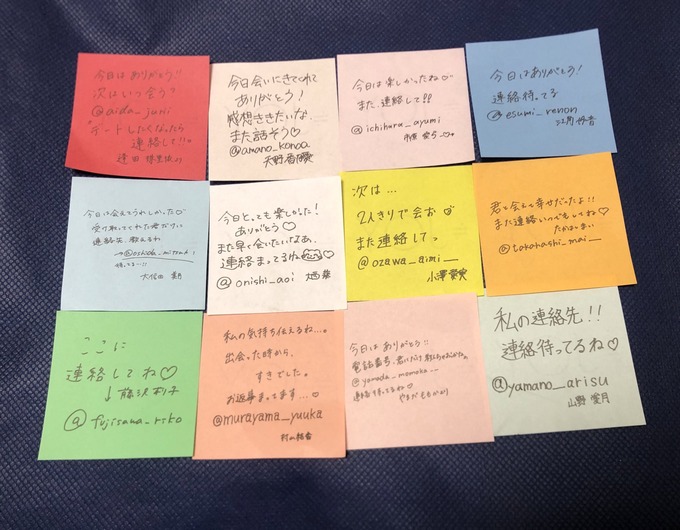 今日はありがとう!!
次はいつ会う?
@aida_juri
デートしたくなったら
連絡して!!
今日会いにきてくれて
ありがとう!
感想ききたいな、
また話そう♡
@amano_konoa
天野
今日は楽しかったね♡
また、連絡して!!
@ichihara_ayumi
市原 愛弓
今日はありがとう!
連絡待ってる
@esumi_renon
江角 怜音
今日は会えてうれしかった♡
受け取ってくれた君だけに
連絡先教えるね
→@oshida_mitsuki
待ってるー!!
大信田 美月
今日とっても楽しかった!
ありがとう♡
また早く会いたいなぁ、
連絡まってるね
@onishi_aoi
大西 葵
次は...
2人きりで会お
また連絡してっ
@ozawa_aimi__
小澤愛実
君と会えて幸せだったよ!!
また連絡いつでもしてね♡
たかはしまい
@takahashi_mai__
ここに
連絡してね♡
↓藤沢莉子
@fujisawa_riko
私の気持ち伝えるね...。
出会った時から、
すきでした。
お返事まってます...♡
@murayama_yuuka
村山結香
今日はありがとう!!
電話番号、君にだけ教えちゃおかなぁ。
@yamada_momoka__
連絡待ってるね♡
やまだももかより
私の連絡先!!
連絡待ってるね♡
@yamano_arisu
山野 愛月